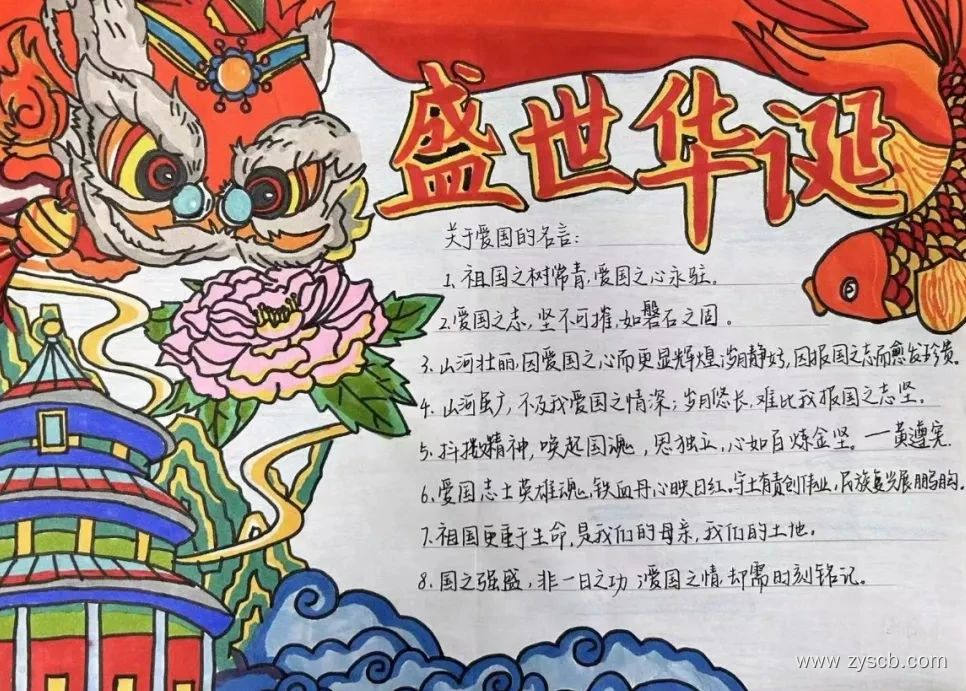 盛世华诞
关于爱国的名言:
1. 祖国之树常青,爱国之心永驻。
2. 爱国之志,坚不可摧,如磐石之固。
3. 山河壮丽,因爱国之心而更显辉煌;岁月静好,因报国之志而愈发珍贵。
4. 山河虽广,不及我爱国之情深;岁月悠长,难比我报国之志坚。
5. 抖擞精神,唤起国魂,思独立,心如百炼金坚。——黄遵宪
6. 爱国志士英雄魂,铁血丹心映日红。守土有责创伟业,民族复兴展鹏
7. 祖国更重于生命,是我们的母亲,我们的土地。
8. 国之强盛,非一日之功;爱国之情,却需时刻铭记。
www.zyscb.com